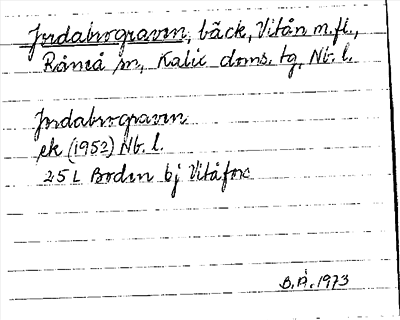 Jordabrograven, bäck, Vitån m.fl.,
Råneå sn, Kalix doms. tg, Nb. l.
Jordabrograven
ek (1952) Nb. l.
25 L Boden bj Vitåfors
B.Å. 1973